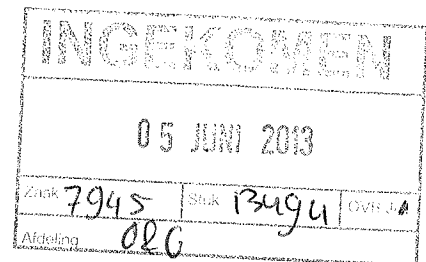 INGEKOMEN
05 JUNI 2013
Zaak 7945 Stuk 13494 OVR
Afdeling ORG